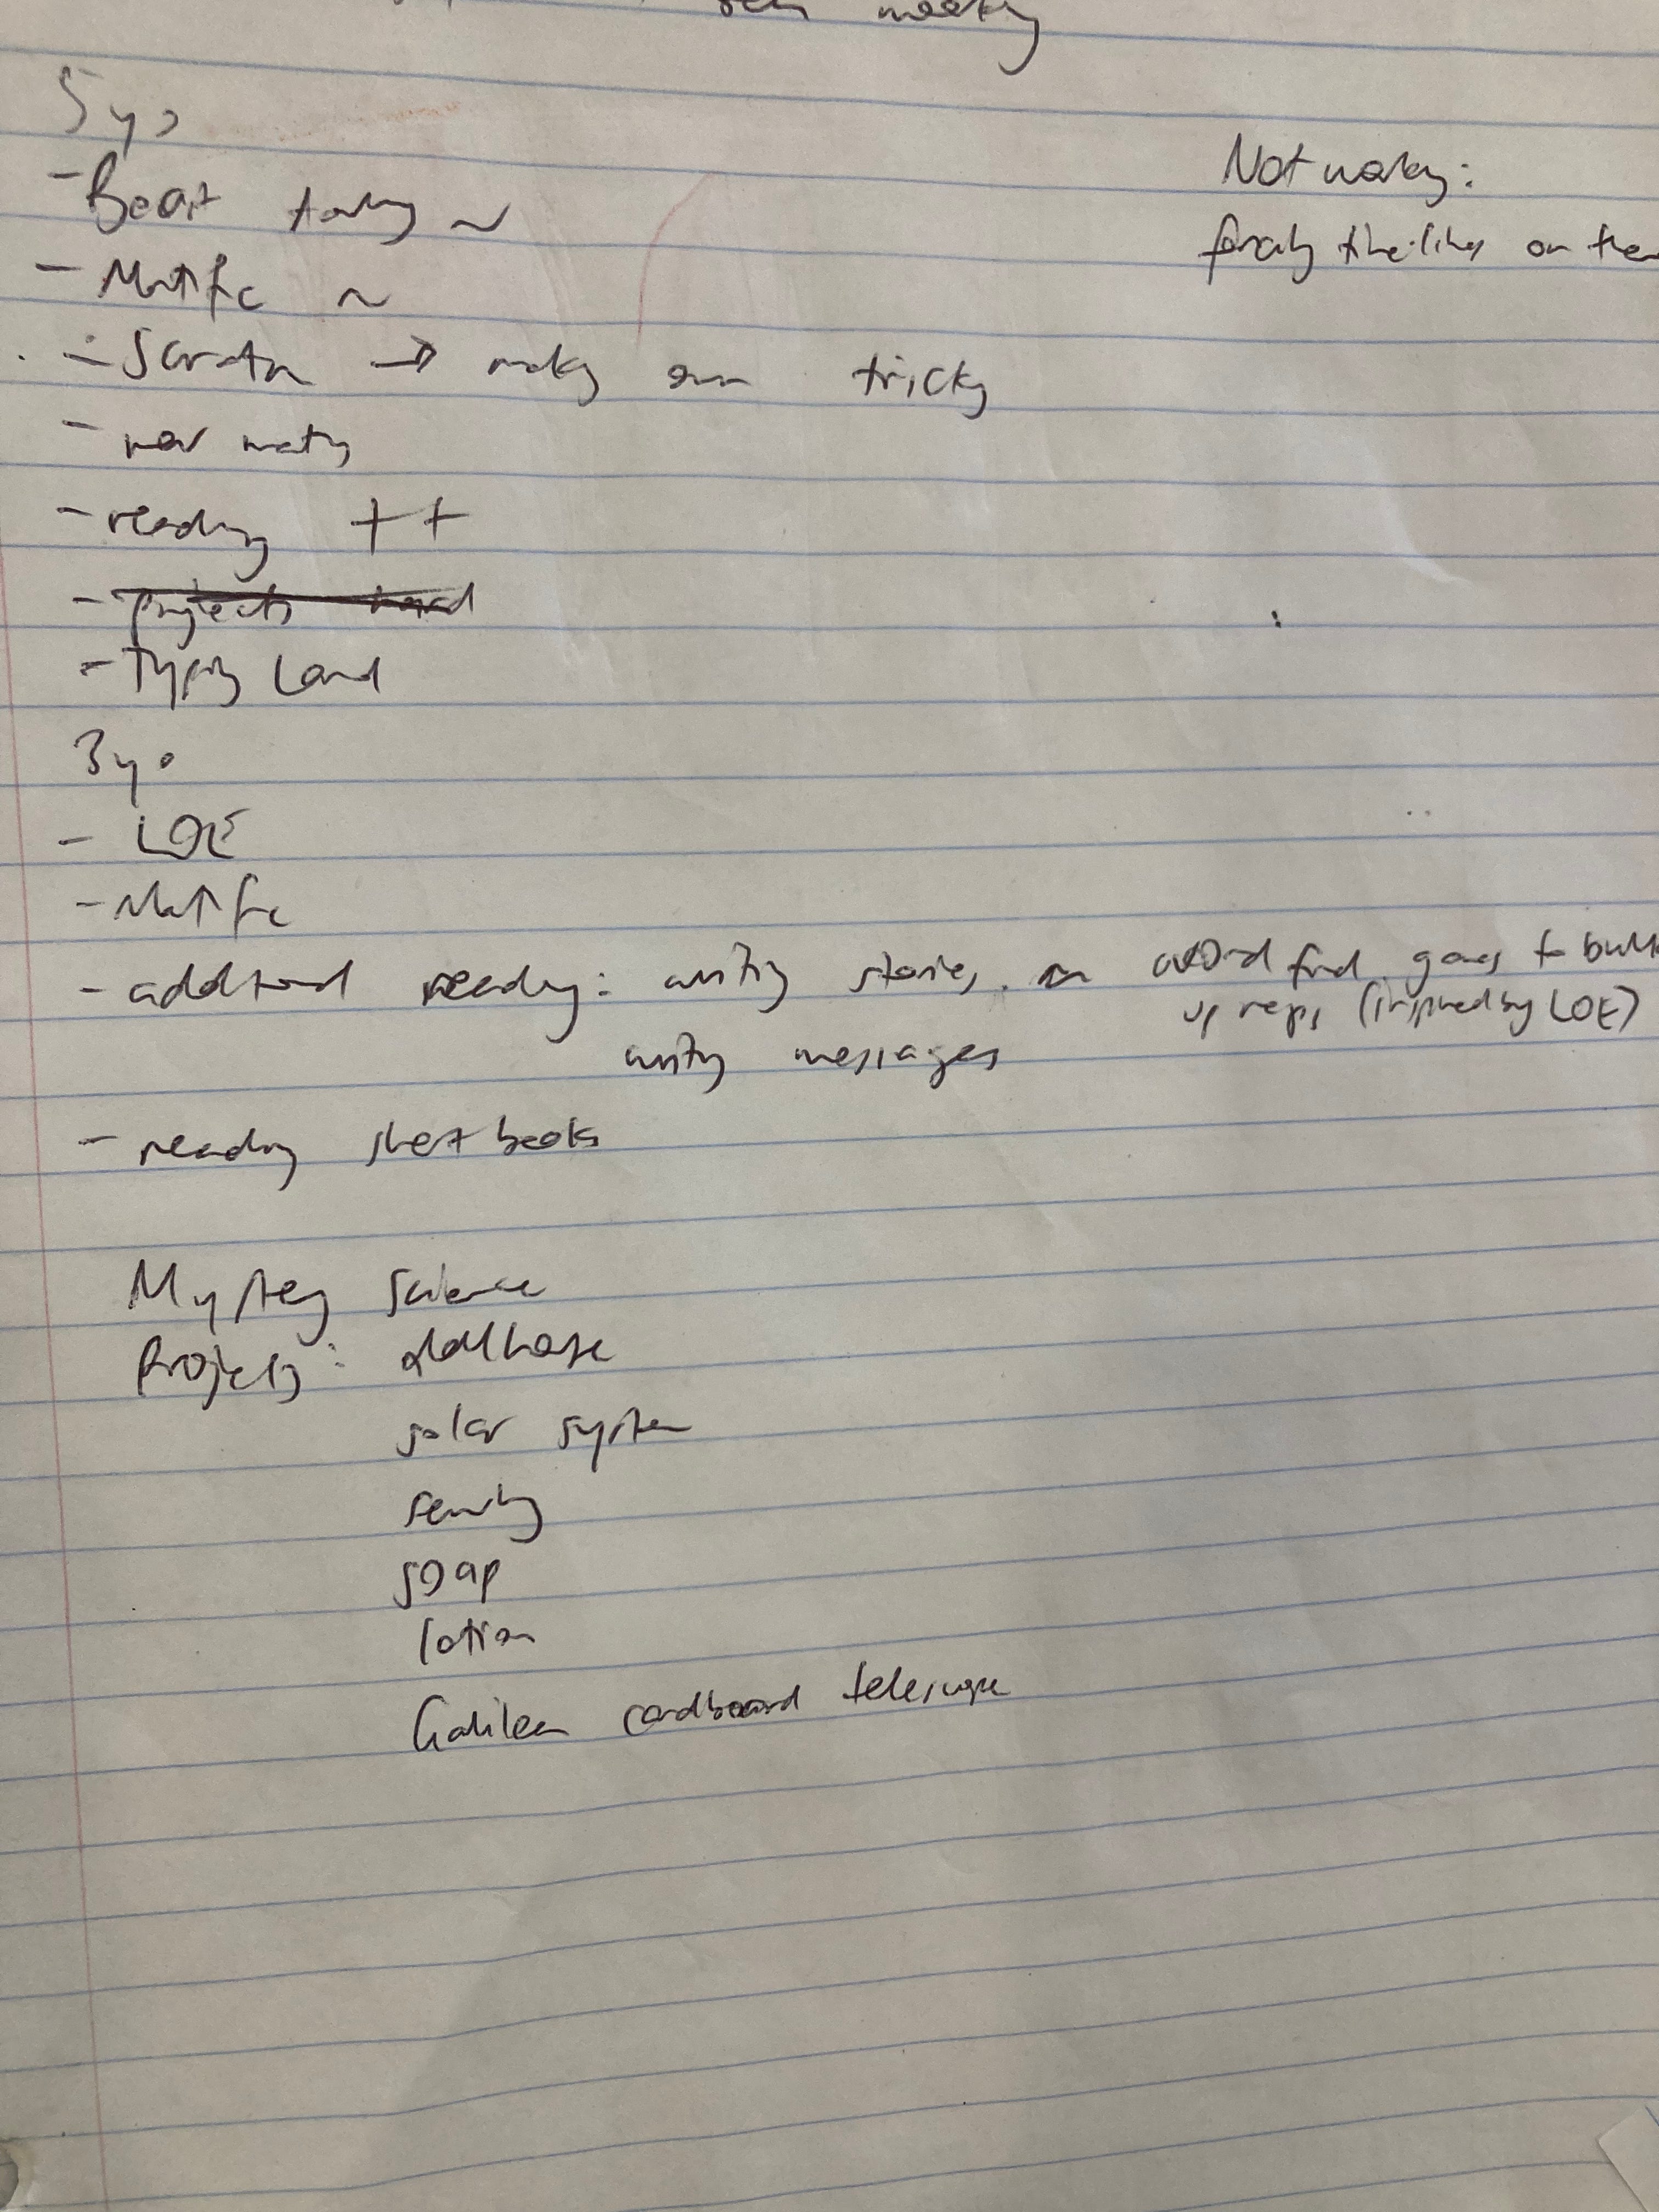 5yo
Not working:
- Beast
~
- Matific ~
forcing timelines on them
- Scratch → making own tricky
- math
- reading ++
- projects hard
- Typing Land
3yo
- LOE
- Matific
- additional reading: writing stories. word find games to build
up reps (inspired by LOE)
writing messages
- reading short books
Mystery Science
Projects: dollhouse
solar system
sewing
soap
lotion
Galilean cardboard telescope